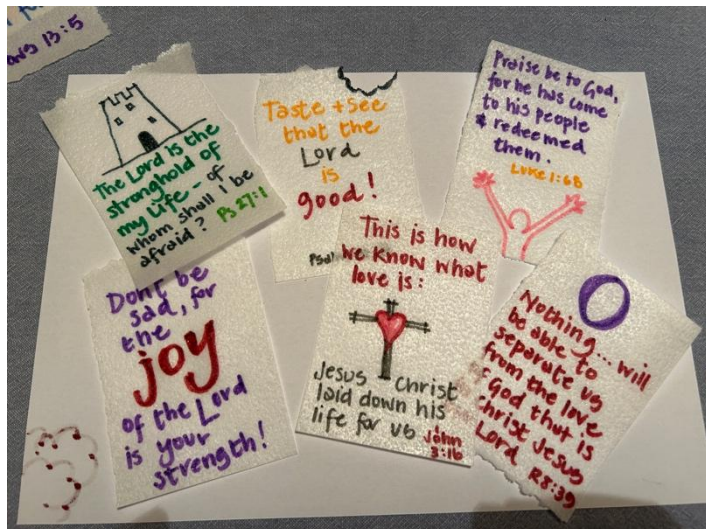 ans 13:5
The Lord is the
stronghold of
my life - of
whom shall I be
afraid? Ps 27:1
Taste + See
that the
Lord
is
good!
Praise be to God,
for he has come
to his people
& redeemed
them.
Luke 1:68
Dont be
sad, for
the
joy
of the Lord
is your
strength!
This is how
we know what
love is:
Jesus Christ
laid down his
life for us John
3:16
Nothing... will
be able to
separate us
from the love
of God that is
Christ Jesus
Lord R8:39